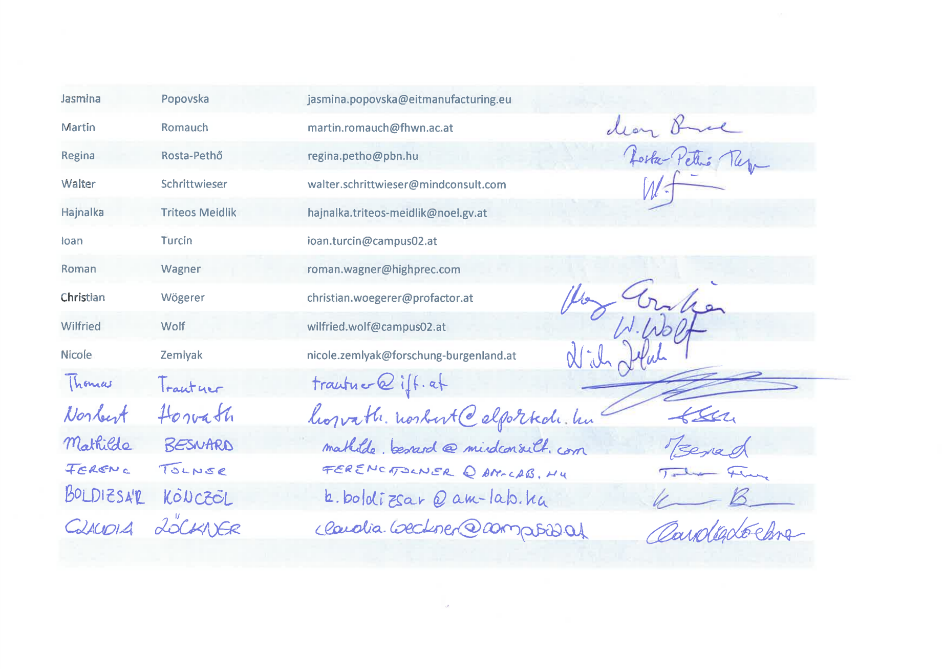 Jasmina Popovska jasmina.popovska@eitmanufacturing.eu
Martin Romauch martin.romauch@fhwn.ac.at
Regina Rosta-Pethő regina.petho@pbn.hu Rosta-Pethő
Walter Schrittwieser walter.schrittwieser@mindconsult.com
Hajnalka Triteos Meidlik hajnalka.triteos-meidlik@noel.gv.at
Ioan Turcin ioan.turcin@campus02.at
Roman Wagner roman.wagner@highprec.com
Christian Wögerer christian.woegerer@profactor.at
Wilfried Wolf wilfried.wolf@campus02.at W. Wolf
Nicole Zemlyak nicole.zemlyak@forschung-burgenland.at
Thomas Trautner trautner@ift.at
Norbert Horvath
Mathilde BESNARD mathilde.besnard@mindconsult.com
FERENC TOLNER
BOLDIZSÁR KÖNCZÖL b.boldizsar@am-lab.hu
CLAUDIA LÖCKNER